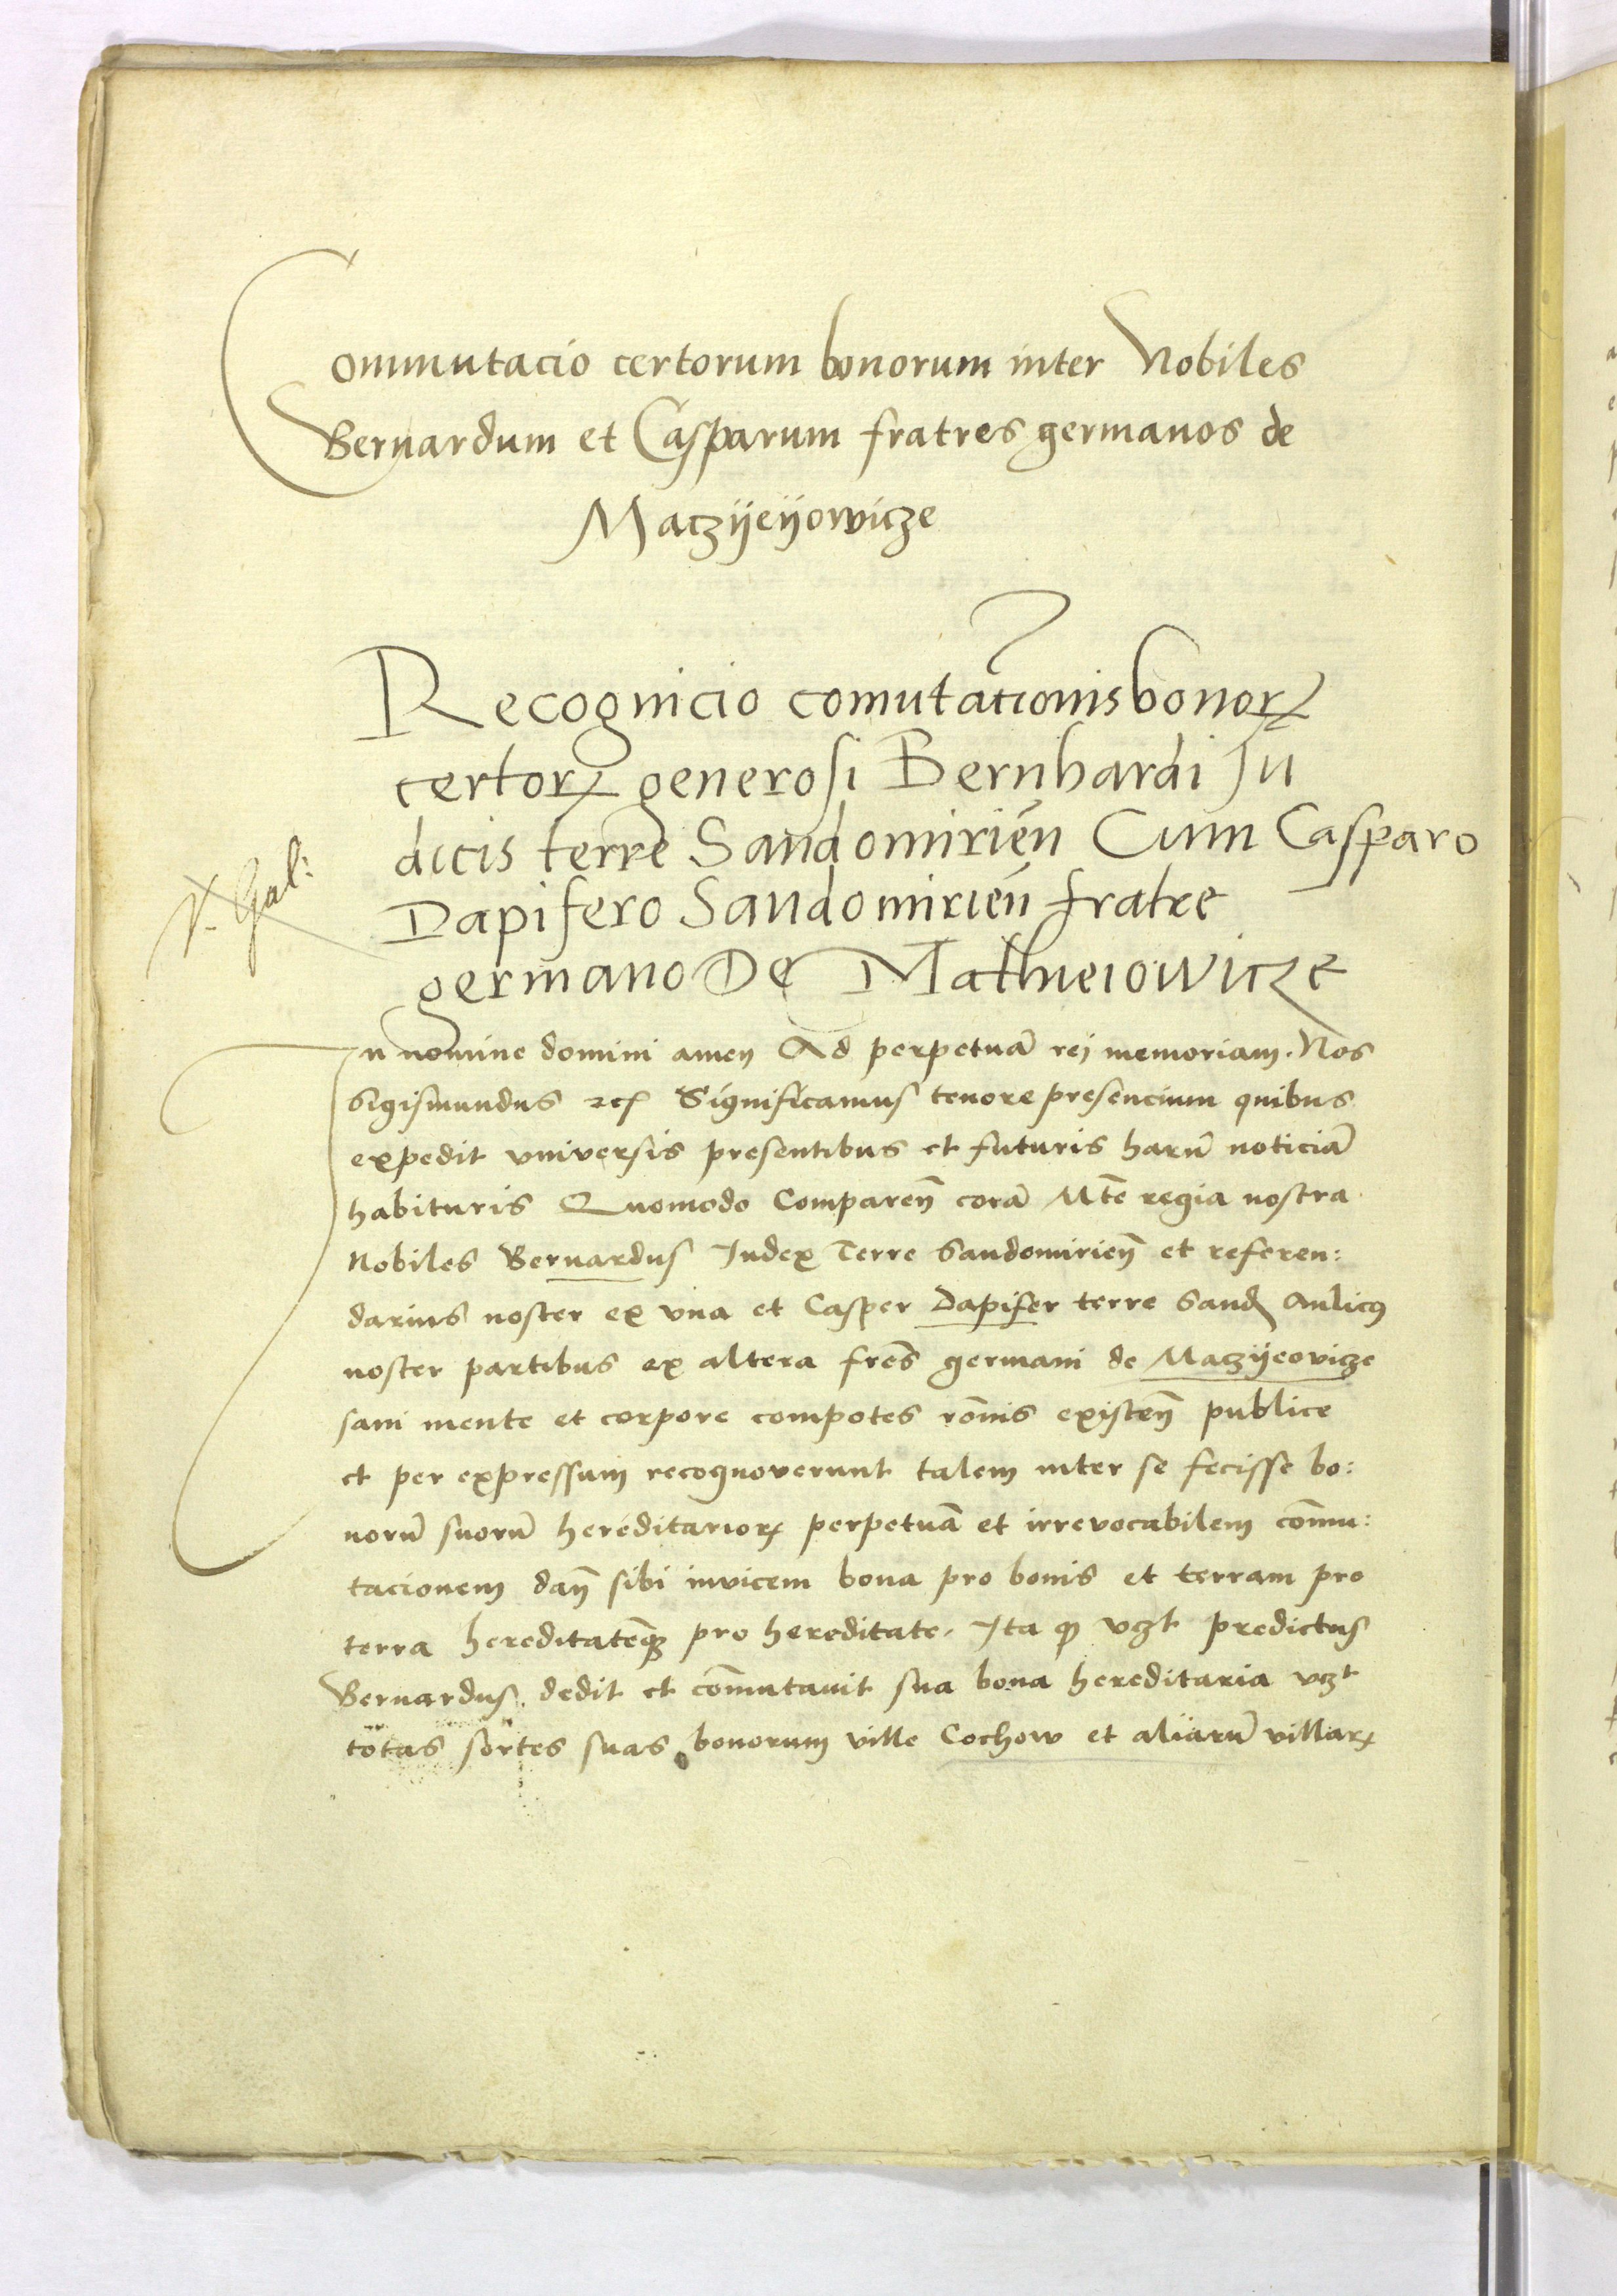 Commutacio certorum bonorum inter Nobiles
Bernardum et Casparum fratres germanos de
Maczÿeÿowicze
Recognicio comutationis bonorꝝ
certorꝝ generosi Bernhardi Ju
dicis terre Sandomirien̄ Cum Casparo
V. Gal:
Dapifero Sandomirien̄ fratre
germano De Mathieiowicze
In nomine domini amen Ad perpetuā rej memoriam. Nos
Sigismundus ꝛcꝭ Significamus tenore presencium quibus
expedit vniversis presentibus et futuris harū noticiā
habituris Quomodo Comparen̄ corā Mte͞ regia nostra
Nobiles Bernardus Judex Terre Sandomirien̄ et referen:
darius noster ex vna et Casper Dapifer terre Sandꝭ Aulicꝰ
noster partibus ex altera fres͞ germani de Maczÿeovicze
sani mente et corpore compotes rōnis existen̄ publice
et per expressum recognoverunt talem inter se fecisse bo:
norū suorū hereditariorꝝ perpetuā et irrevocabilem com̄u:
tacionem dan̄ sibi invicem bona pro bonis et terram pro
terra hereditatēqꝫ pro hereditate. Ita ꝙ vꝫt predictus
Bernardus dedit et com̄utauit sua bona hereditaria vꝫt
totas sortes suas bonorum ville Cochow et aliarū villarꝝ